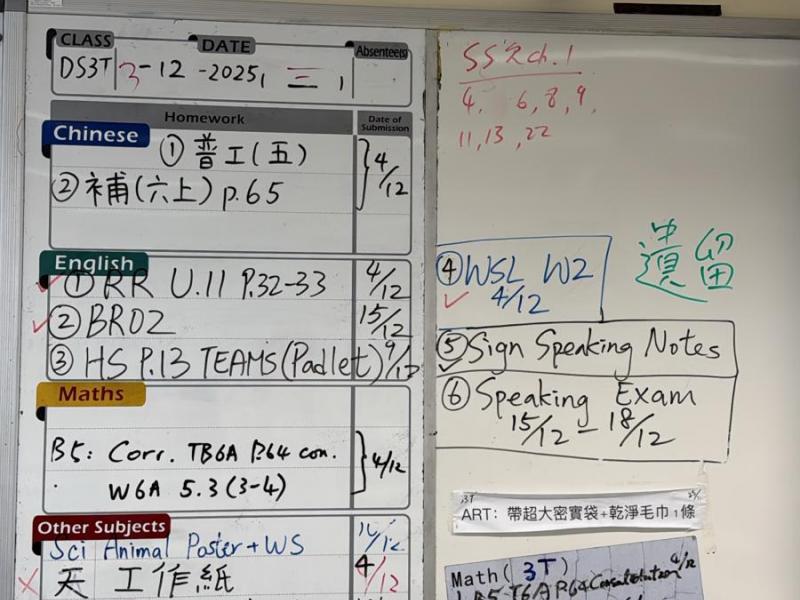 CLASS DATE Absentee(s)
DS3T 3-12-2025, 三,
Homework Date of Submission
Chinese
① 普工(五)
② 補(六上) p.65
4/12
English
① RR U.11 P.32-33 4/12
② BR02 15/12
③ HS P.13 TEAMS(Padlet) 9/12
Maths
B5: Corr. TB6A P.64 con.
W6A 5.3 (3-4)
4/12
Other Subjects
Sci Animal Poster + WS 16/12
天 工作紙 4/12
SS 欠 ch.1
4, 6, 8, 9,
11, 13, 22
④ WSL W2
4/12
遺留
⑤ Sign Speaking Notes
⑥ Speaking Exam
15/12 – 18/12
ART: 帶超大密實袋+乾淨毛巾1條
Math( 3T )
4/12